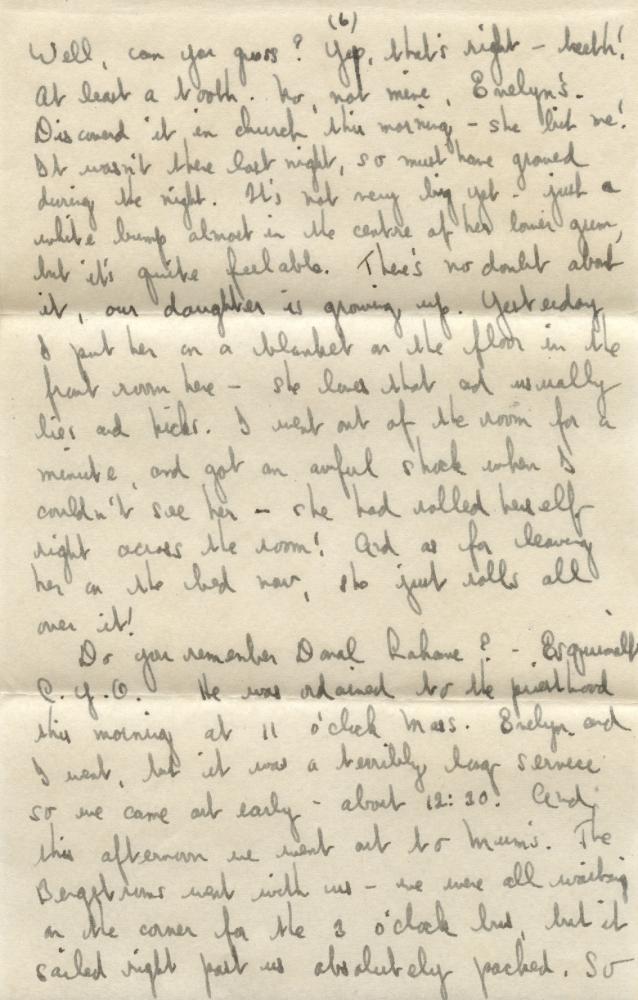 (6)
Well, can you guess? Yep, that's right – teeth!
At least a tooth. No, not mine, Evelyn's.
Discovered it in church this morning – she bit me!
It wasn't there last night, so must have growed
during the night. It's not very big yet – just a
white bump almost in the centre of her lower gum,
but it's quite feelable. There's no doubt about
it, our daughter is growing up. Yesterday
I put her on a blanket on the floor in the
front room here – she loves that and usually
lies and kicks. I went out of the room for a
minute, and got an awful shock when I
couldn't see her – she had rolled herself
right across the room! And as for leaving
her on the bed now, she just rolls all
over it!
Do you remember Donal ? – Esquimalt
C.Y.O. He was ordained to the priesthood
this morning at 11 o'clock Mass. Evelyn and
I went, but it was a terribly long service
so we came out early – about 12:30. And
this afternoon we went out to Mum's. The
Bergstroms went with us – we were all waiting
on the corner for the 3 o'clock bus, but it
sailed right past us absolutely packed. So